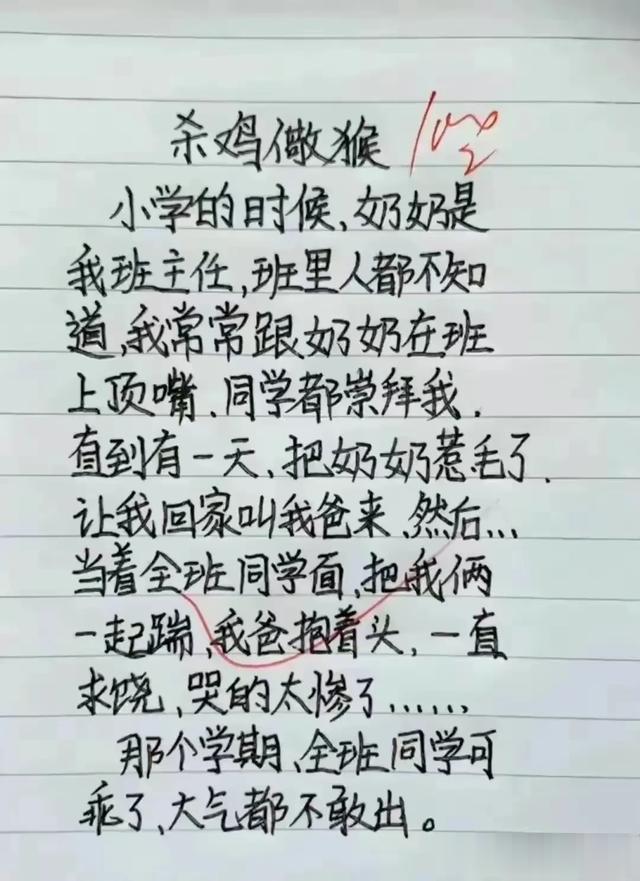 杀鸡儆猴 100
小学的时候、奶奶是
我班主任,班里人都不知
道,我常常跟奶奶在班
上顶嘴、同学都崇拜我.
直到有一天、把奶奶惹毛了.
让我回家叫我爸来、然后...
当着全班同学面、把我俩
一起踹,我爸抱着头,一直
求饶、哭的太惨了......
那个学期、全班同学可
乖了、大气都不敢出。